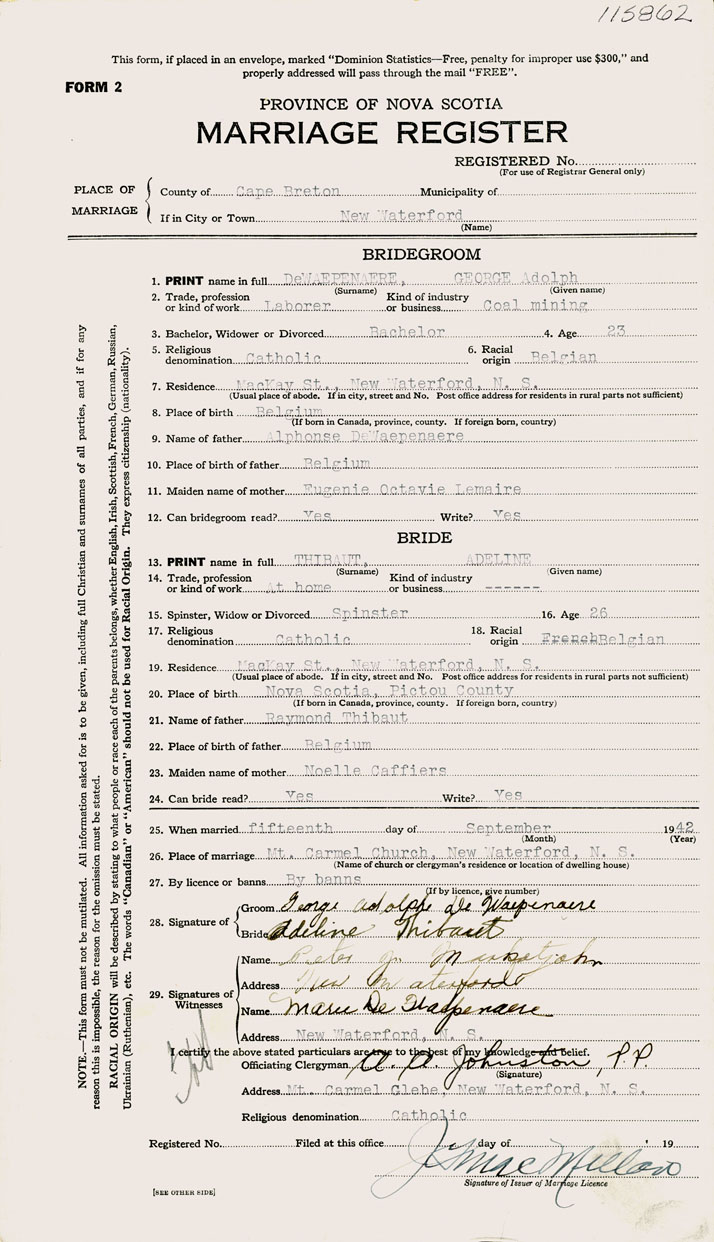 115862
This form, if placed in an envelope, marked "Dominion Statistics—Free, penalty for improper use $300," and
properly addressed will pass through the mail "FREE".
FORM 2
PROVINCE OF NOVA SCOTIA
MARRIAGE REGISTER
REGISTERED No.
(For use of Registrar General only)
PLACE OF MARRIAGE
County of Cape Breton Municipality of
If in City or Town New Waterford
(Name)
BRIDEGROOM
1. PRINT name in full DeWAEPENAERE, GEORGE Adolph
(Surname) (Given name)
2. Trade, profession or kind of work Laborer Kind of industry or business Coal mining
3. Bachelor, Widower or Divorced Bachelor 4. Age 23
5. Religious denomination Catholic 6. Racial origin Belgian
7. Residence MacKay St., New Waterford, N. S.
(Usual place of abode. If in city, street and No. Post office address for residents in rural parts not sufficient)
8. Place of birth Belgium
(If born in Canada, province, county. If foreign born, country)
9. Name of father Alphonse DeWaepenaere
10. Place of birth of father Belgium
11. Maiden name of mother Eugenie Octavie Lemaire
12. Can bridegroom read? Yes Write? Yes
BRIDE
13. PRINT name in full THIBAUT, ADELINE
(Surname) (Given name)
14. Trade, profession or kind of work At home Kind of industry or business ------
15. Spinster, Widow or Divorced Spinster 16. Age 26
17. Religious denomination Catholic 18. Racial origin French Belgian
19. Residence MacKay St., New Waterford, N. S.
(Usual place of abode. If in city, street and No. Post office address for residents in rural parts not sufficient)
20. Place of birth Nova Scotia, Pictou County
(If born in Canada, province, county. If foreign born, country)
21. Name of father Raymond Thibaut
22. Place of birth of father Belgium
23. Maiden name of mother Noelle Caffiers
24. Can bride read? Yes Write? Yes
25. When married fifteenth day of September 1942
(Month) (Year)
26. Place of marriage Mt. Carmel Church, New Waterford, N. S.
(Name of church or clergyman's residence or location of dwelling house)
27. By licence or banns By banns
(If by licence, give number)
28. Signature of
Groom George Adolphe De Waepenaere
Bride Adeline Thibaut
29. Signatures of Witnesses
Name Peter J.
Address New Waterford
Name Marie De Waepenaere
Address New Waterford, N. S.
I certify the above stated particulars are true to the best of my knowledge and belief.
Officiating Clergyman Johnston, P.P.
(Signature)
Address Mt. Carmel Glebe, New Waterford, N. S.
Religious denomination Catholic
Registered No. Filed at this office day of 19
J. MacMillan
Signature of Issuer of Marriage Licence
[SEE OTHER SIDE]
NOTE.—This form must not be mutilated. All information asked for is to be given, including full Christian and surnames of all parties, and if for any
reason this is impossible, the reason for the omission must be stated.
RACIAL ORIGIN will be described by stating to what people or race each of the parents belongs, whether English, Irish, Scottish, French, German, Russian,
Ukrainian (Ruthenian), etc. The words "Canadian" or "American" should not be used for Racial Origin. They express citizenship (nationality).